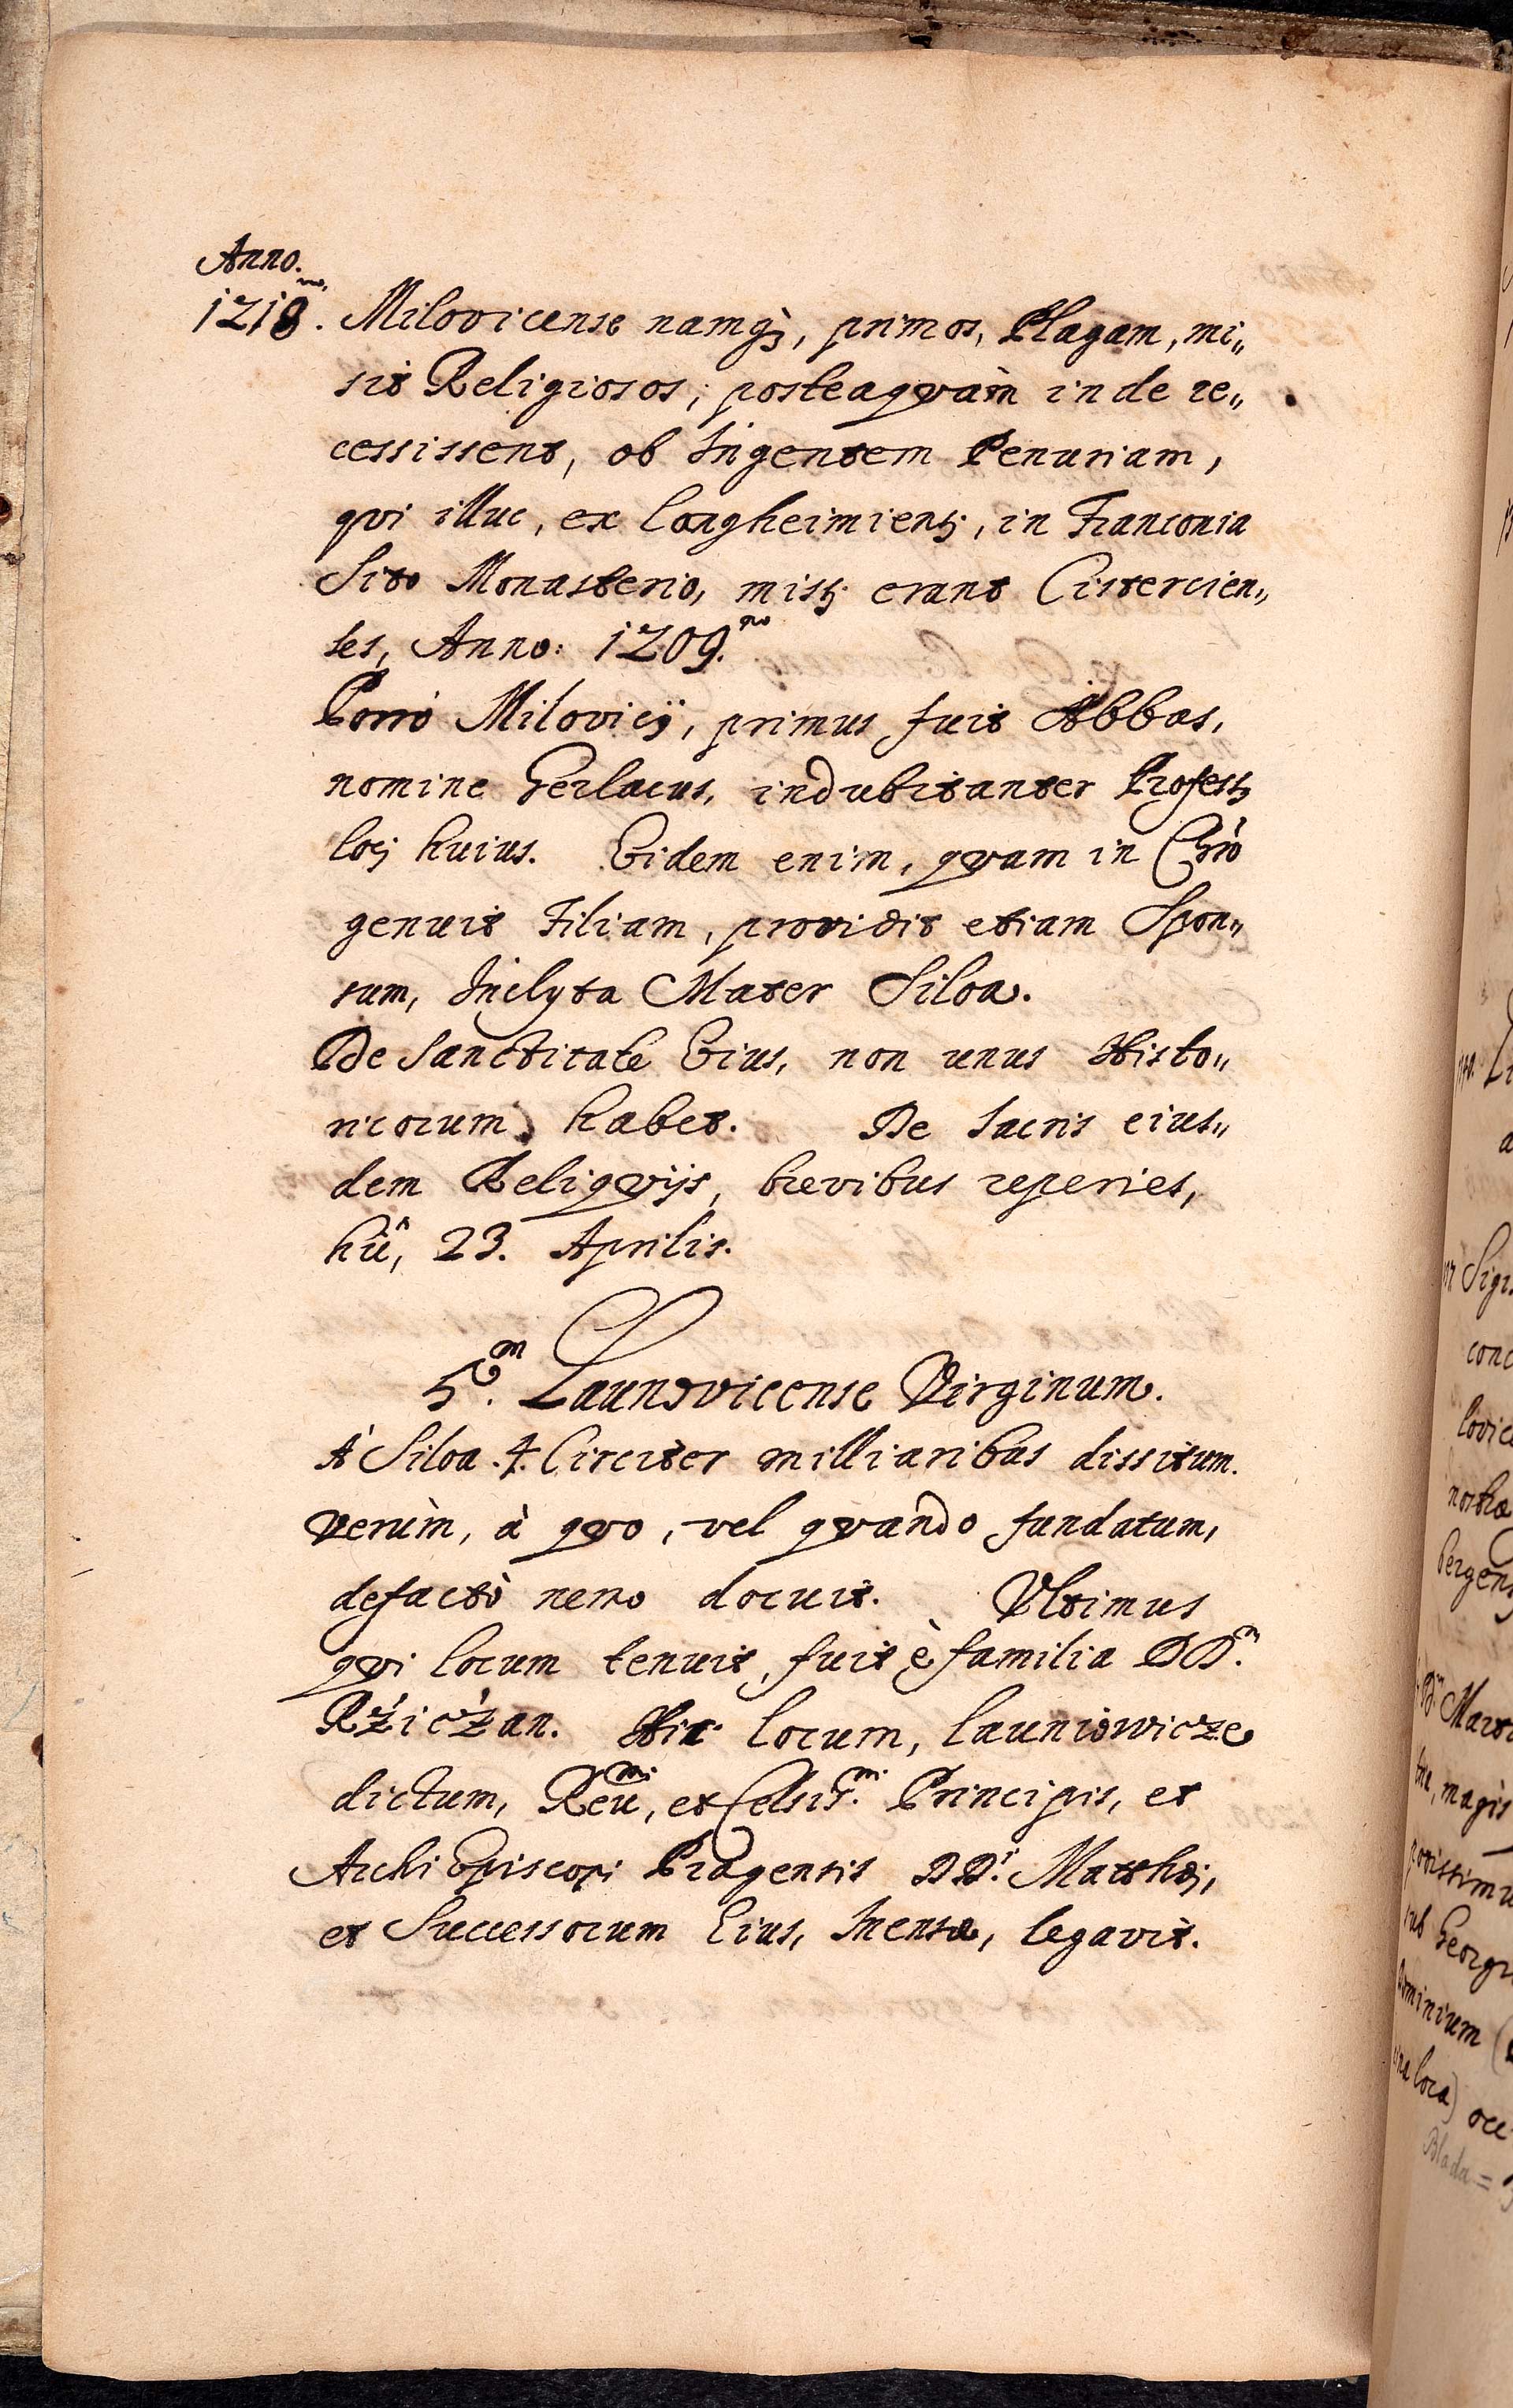 Anno.
1218.mo Milovicense namq₃, primos, Plagam, mi„
sit Religiosos; posteaqvàm inde re„
cessissent, ob Ingentem Penuriam,
qvi illuc, ex Longheimiensi, in Franconia
Sito Monasterio, missi erant Cistercien„
ses, Anno: 1209.no
Porrò Milovicij, primus fuit Abbas,
nomine Gerlacus, indubitanter Professus
locj huius. Eidem enim, qvam in Chrō
genuit Filiam, providit etiam Spon„
sum, Inclyta Mater Siloa.
De Sanctitate Eius, non unus Histo„
ricorum habet. De Sacris eius„
dem Reliqvijs, brevibus reperies,
hîc, 23. Aprilis.
5.um Launovicense Virginum.
A' Siloa .4. Circiter milliaribus dissitum.
Verùm, à qvo, vel qvando fundatum,
defactò nemo docuit. Ultimus
qvi locum tenuit, fuit è familia DD.n
Ržiczan. Hic locum, Launiowicze
dictum, Reū.mi, et Celsis.mi Principis, et
ArchiEpiscopi Pragensis DD.i Matthæj,
et Successorum Eius, Mensæ, legavit.
Sigis
conc
lovice
nostra
Pergens
Marti
magis
potissimu
sub Georgi
Dominium
loca) occ
Blada =